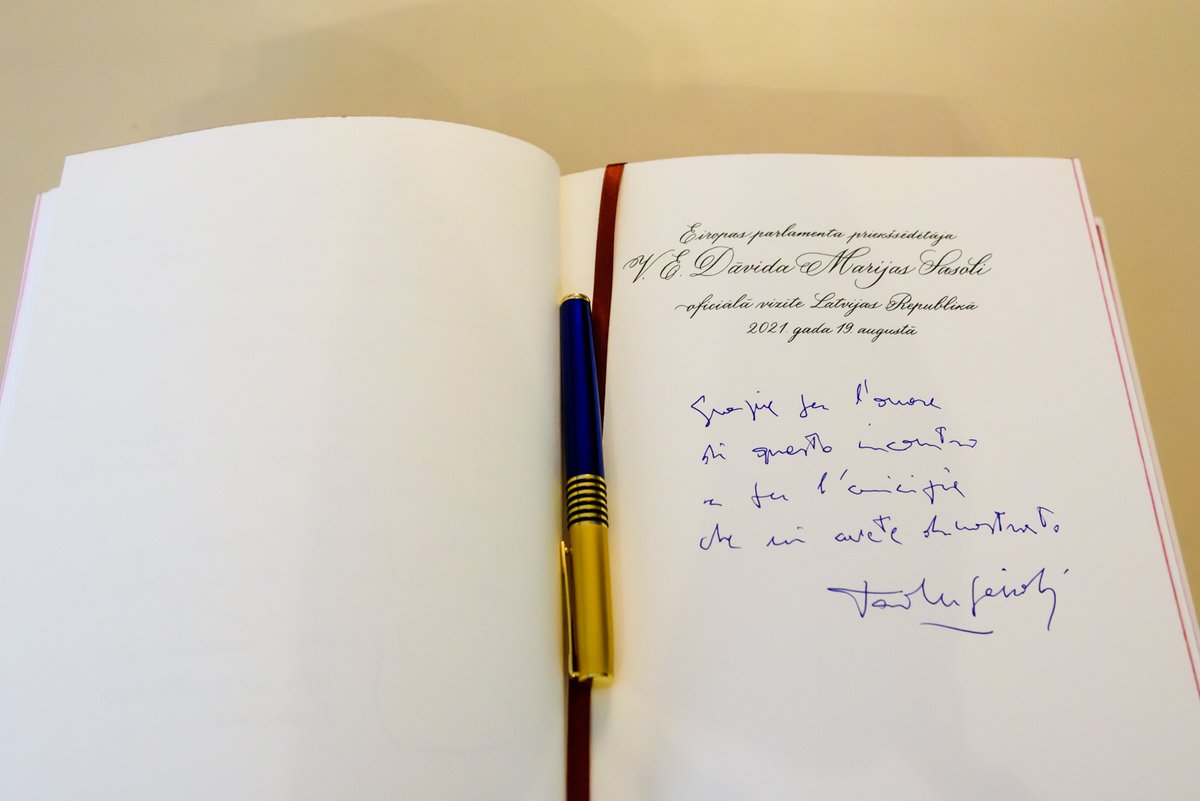 Eiropas parlamenta priekšsēdētāja
V. E. Dāvida Marijas Sasoli
oficiālā vizīte Latvijas Republikā
2021. gada 19. augustā
Grazie per l'onore
di questo incontro
e per l'amicizia
che mi avete dimostrato